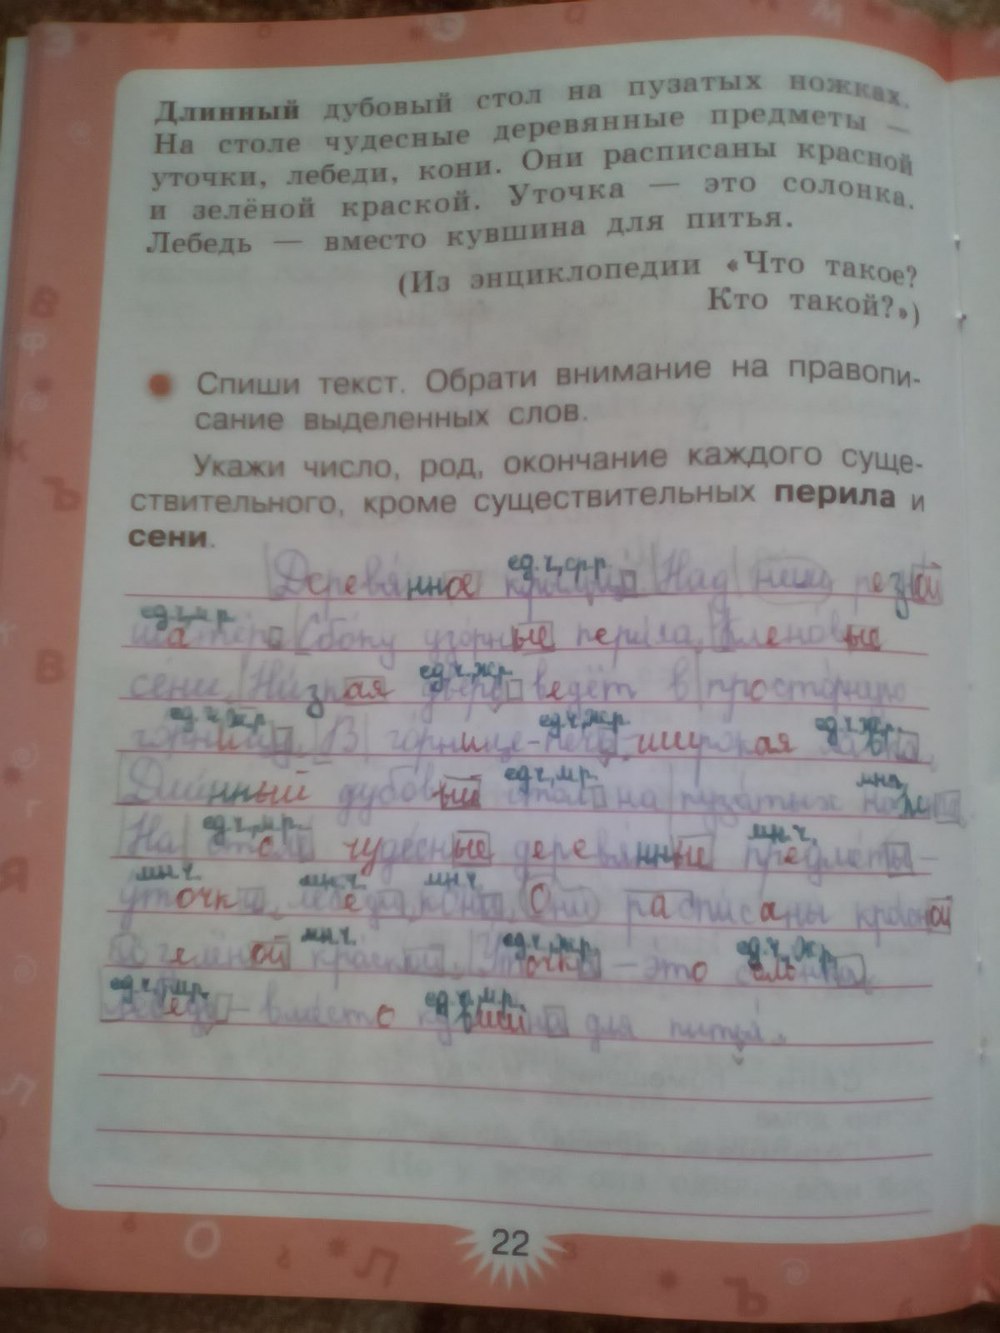 Длинный дубовый стол на пузатых ножках.
На столе чудесные деревянные предметы —
уточки, лебеди, кони. Они расписаны красной
и зелёной краской. Уточка — это солонка.
Лебедь — вместо кувшина для питья.
(Из энциклопедии «Что такое?
Кто такой?»)
Спиши текст. Обрати внимание на правопи-
сание выделенных слов.
Укажи число, род, окончание каждого суще-
ствительного, кроме существительных перила и
сени.
ед.ч, ср.р.
Деревянное крыльцо. Над ним резной
ед.ч, м.р.
шатёр. Сбоку узорные перила. Кленовые
ед.ч, ж.р.
сени. Низкая дверь ведёт в просторную
ед.ч, ж.р. ед.ч, ж.р. ед.ч. ж.р.
горницу. В горнице - печь, широкая лавка.
ед.ч, м.р. мн.
Длинный дубовый стол на пузатых ножках.
ед.ч, м.р. мн.ч.
На столе чудесные деревянные предметы -
мн.ч. мн.ч. мн.ч.
уточки, лебеди, кони. Они расписаны красной
мн.ч. ед.ч, ж.р. ед.ч, ж.р.
и зелёной краской. Уточка - это солонка.
ед.ч, м.р. ед.ч, м.р.
Лебедь - вместо кувшина для питья.
22